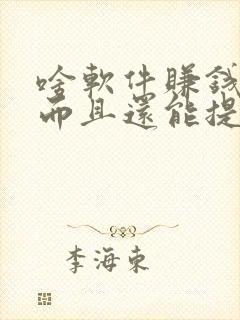 啥軟件賺錢
而且還能提
李海東